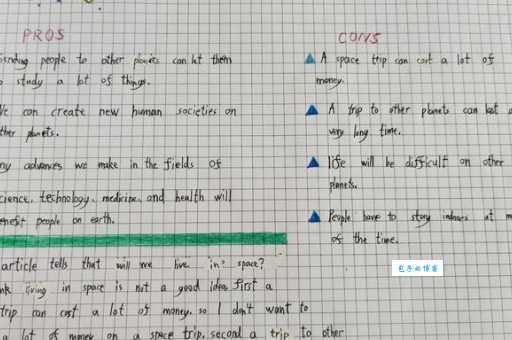 PROS
sending people to other planets can let them
study a lot of things.
We can create new human societies on
other planets.
any advances we make in the fields of
science, technology, medicine, and health will
benefit people on earth.
CONS
A space trip can cost a lot of
money.
A trip to other planets can last a
very long time.
life will be difficult on other
planets.
People have to stay indoors at m
of the time.
article tells that will we live in space?
living in space is not a good idea. first a
trip can cost a lot of money. so I don't want to
a lot of money on a space trip. second a trip to other